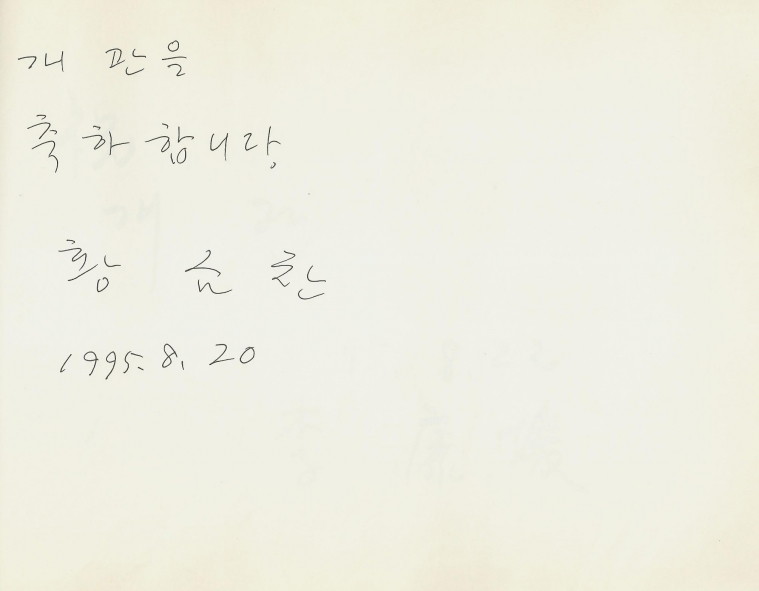 개 관을
축하합니다.
황 금 찬
1995. 8. 20